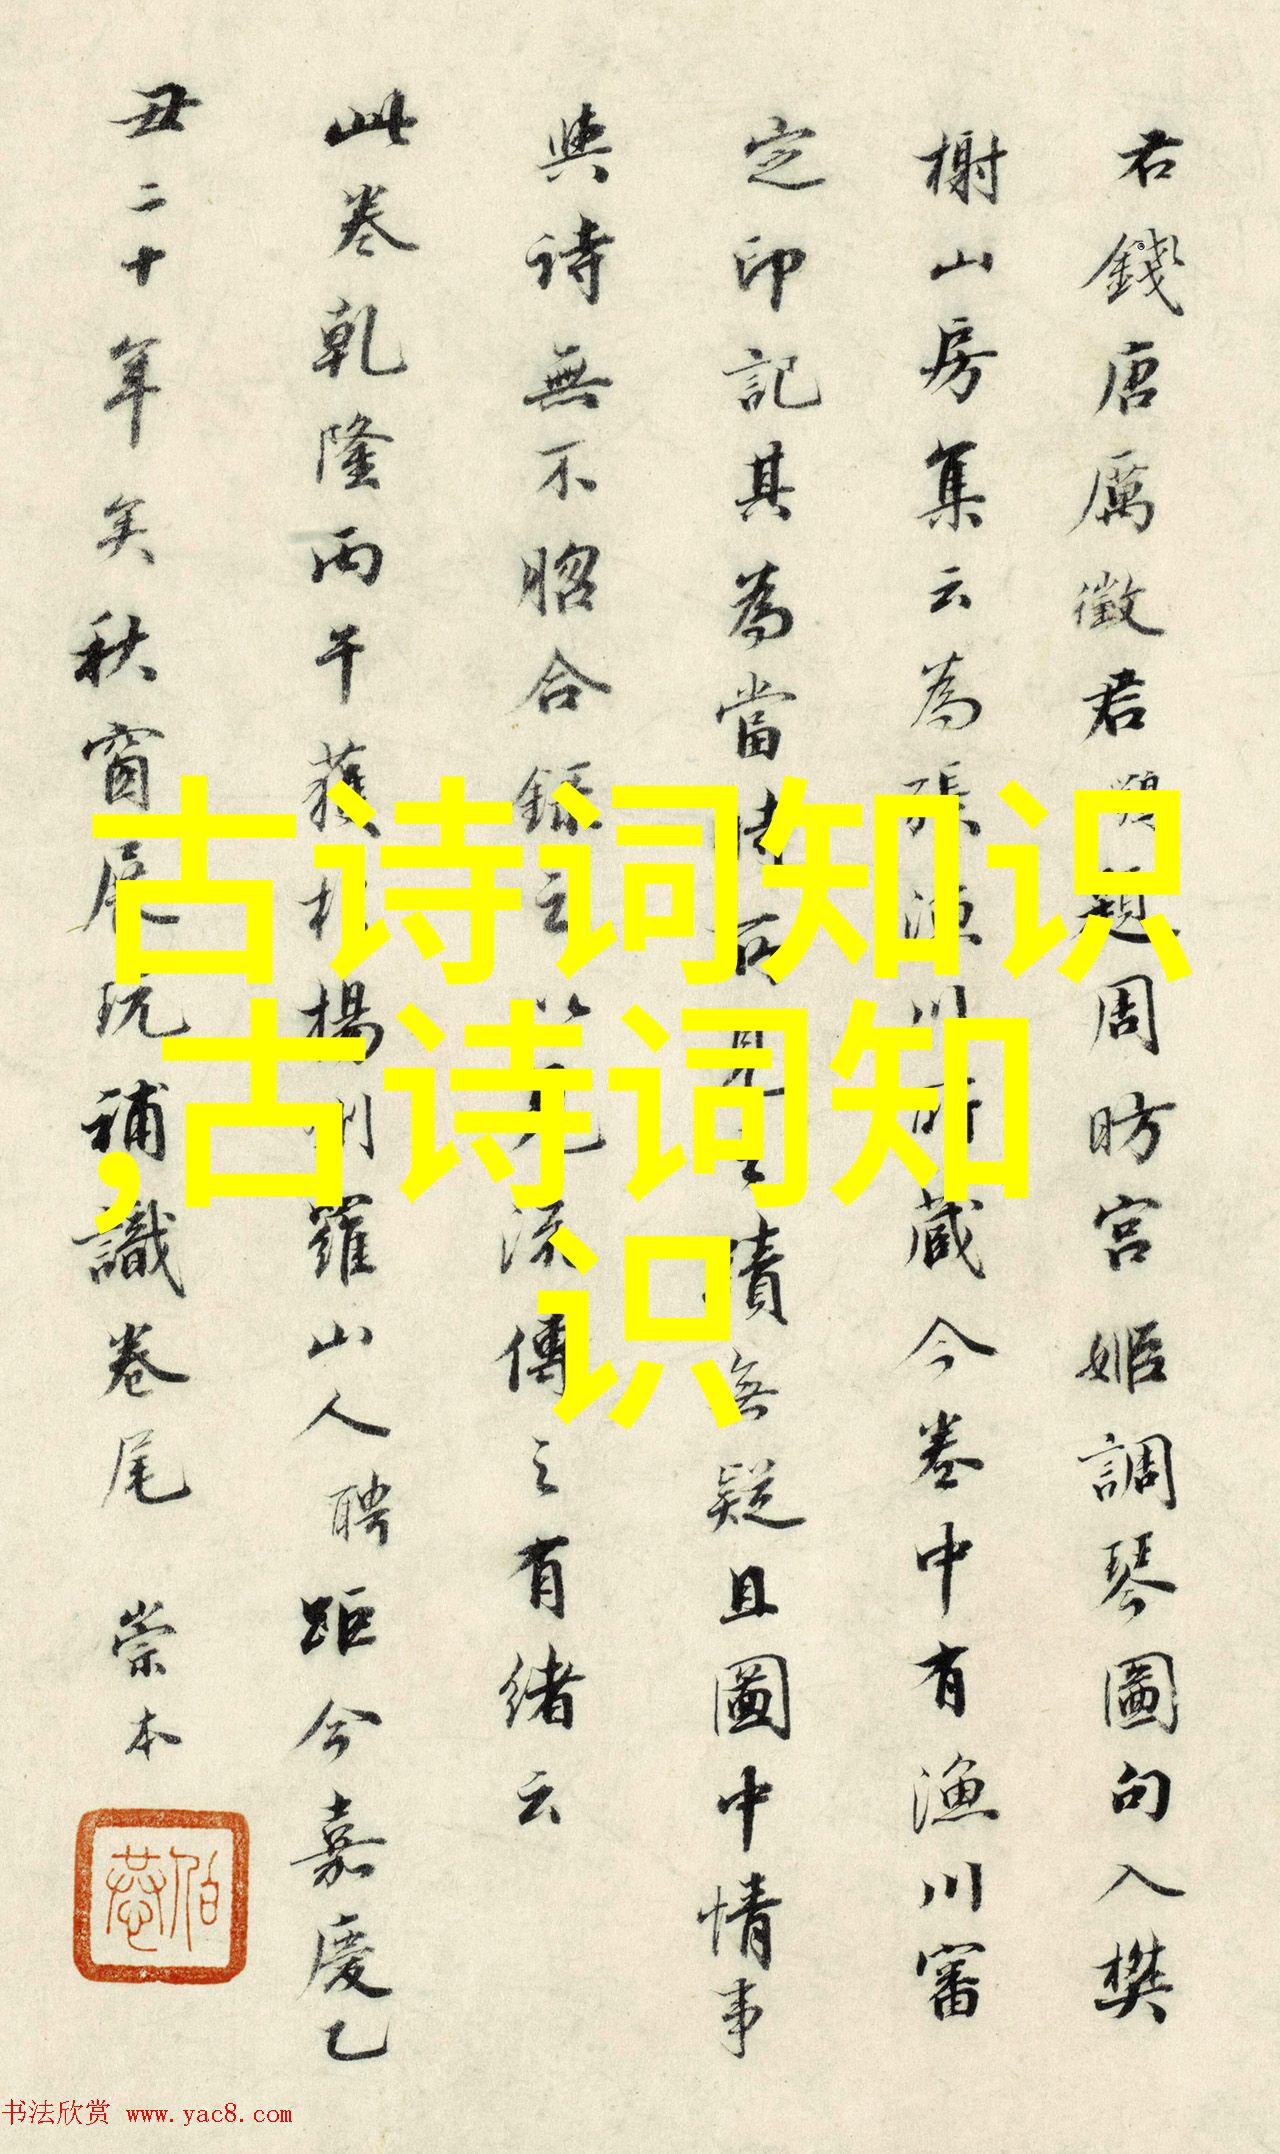 君錢唐厲徵君鶚題周昉宮姬調琴圖句入樊
榭山房集云為張漁川所藏今卷中有漁川審
定印記其為當時所見之蹟無疑且圖中情事
與詩無不脗合錄之以見流傳之有緒云
此卷乾隆丙午獲於揚州羅山人聘距今嘉慶乙
丑二十年矣秋窗展玩補識卷尾 崇本
古诗词知识
,古诗词知
识
书法欣赏 www.yac8.com